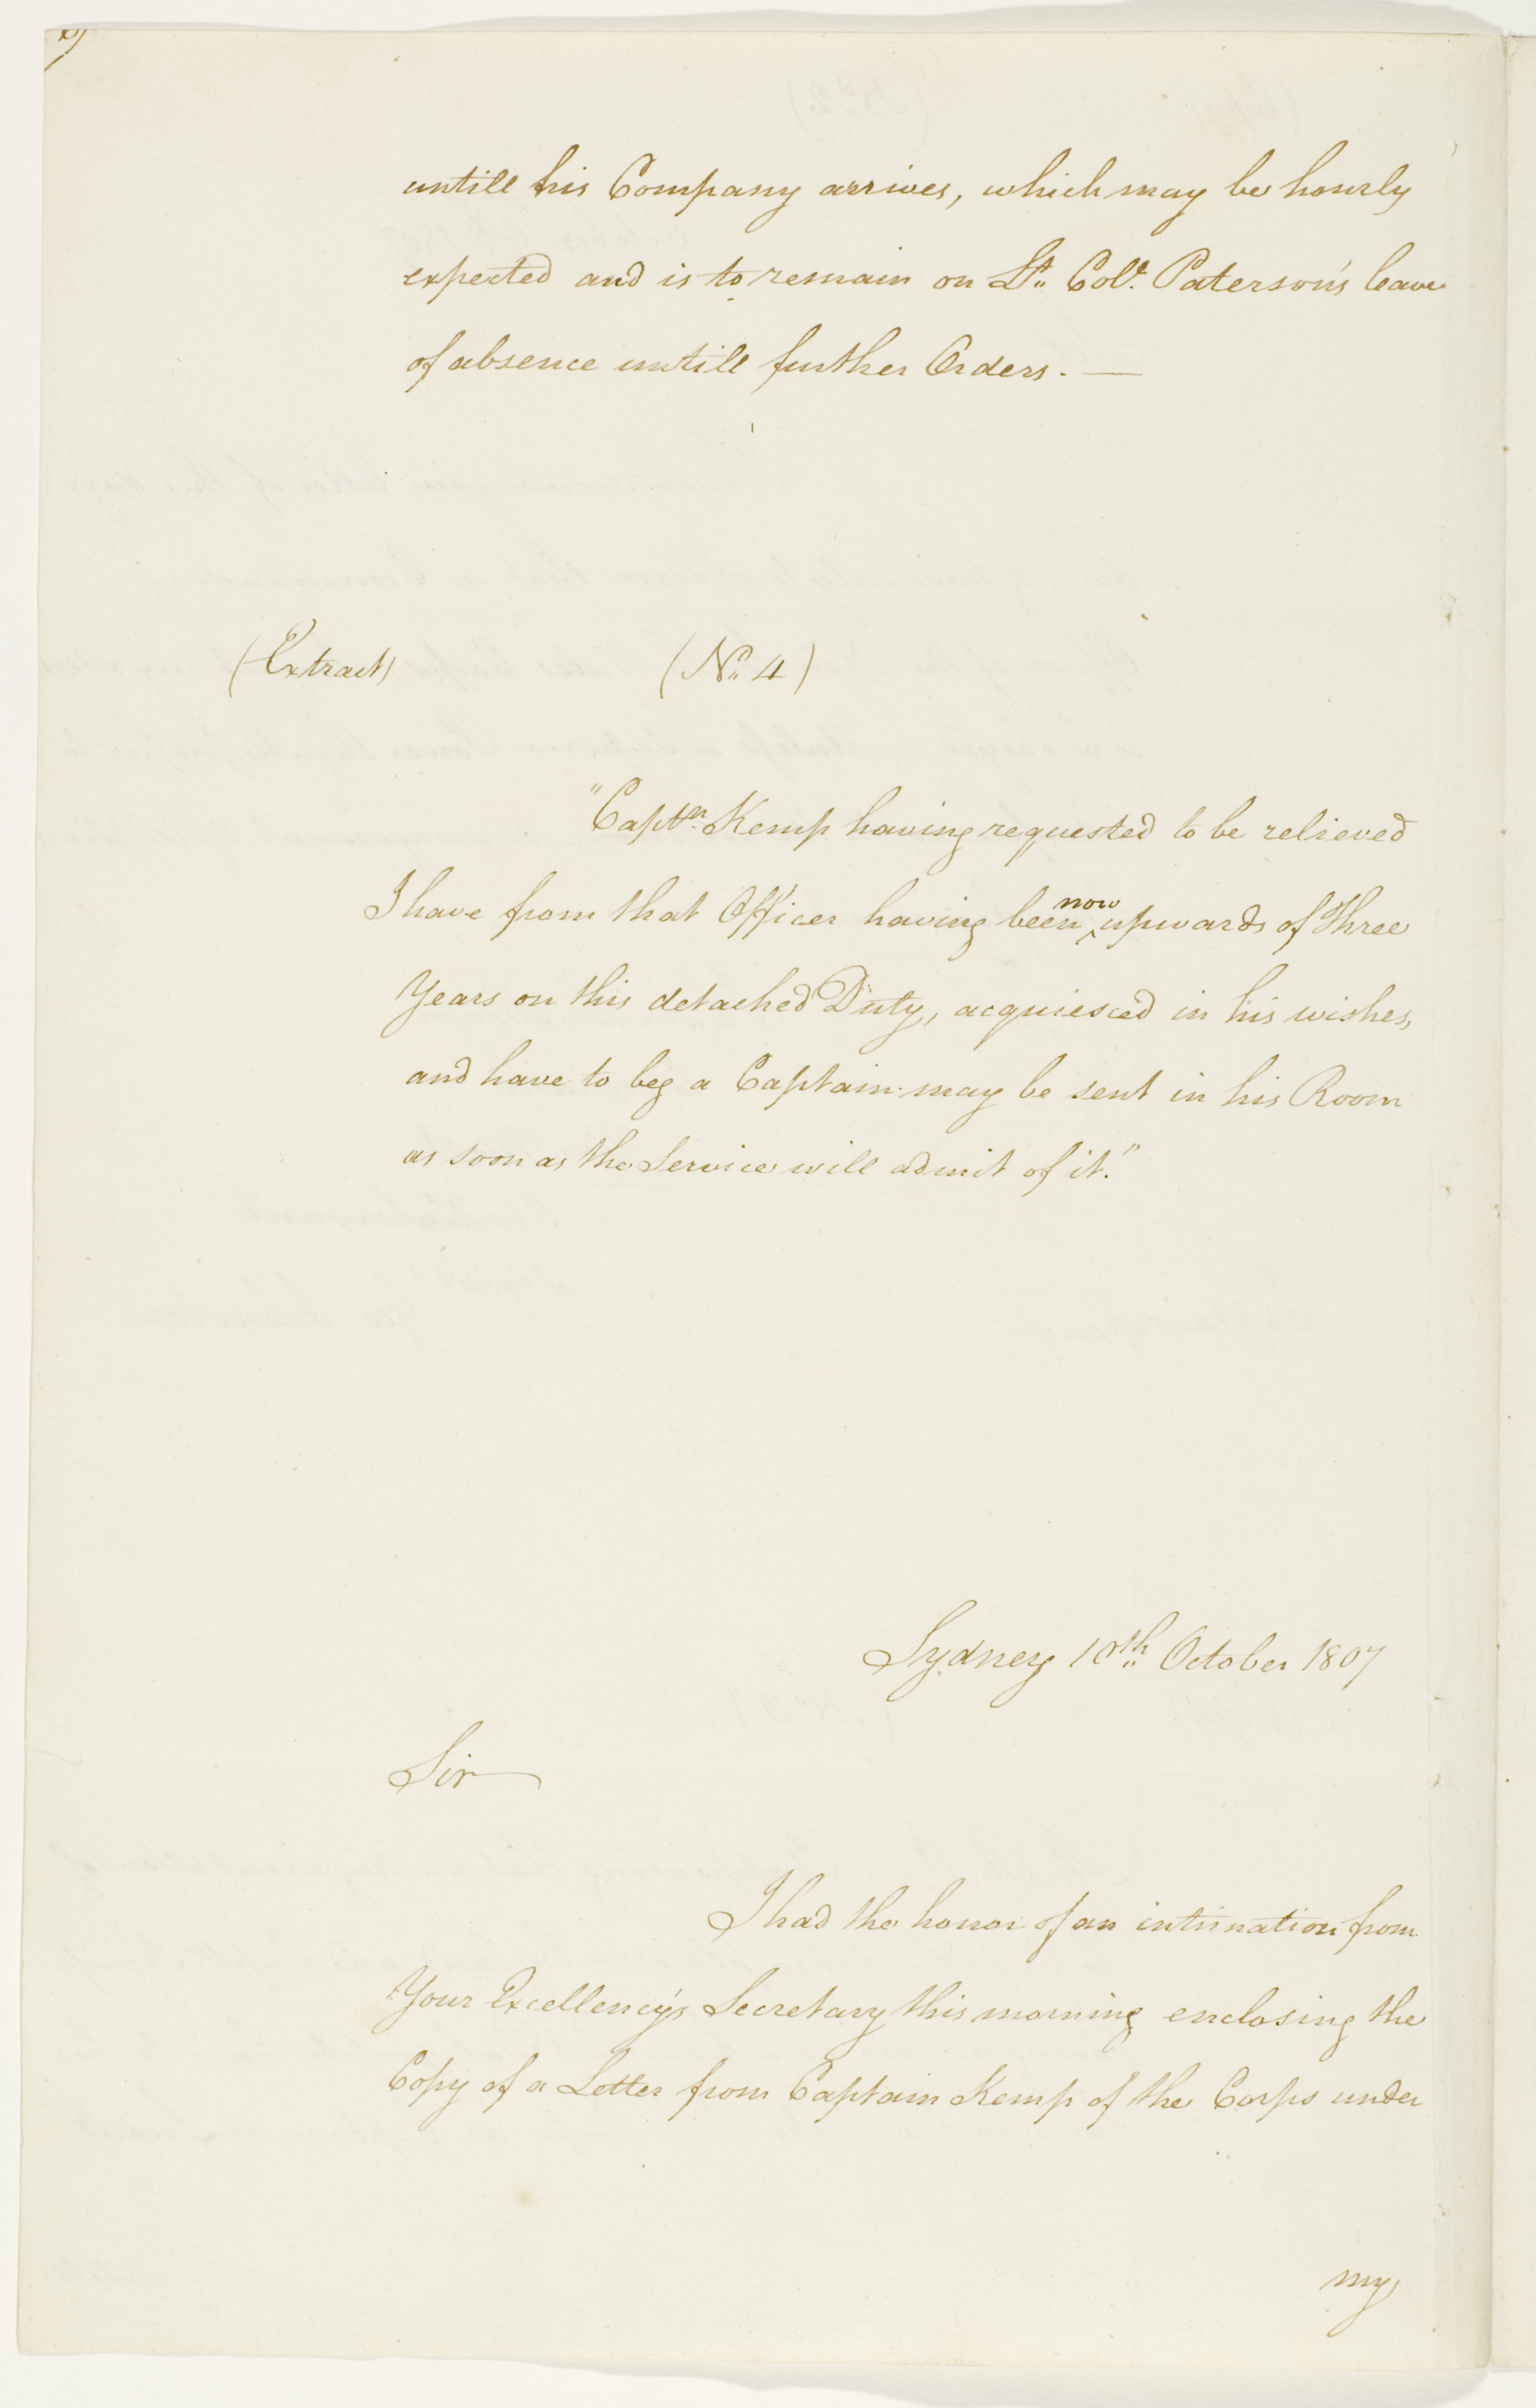 untill his Company arrives, which may be hourly
expected and is to remain on Lt. Col. Paterson's leave
of absence untill further Orders. —
(Extract) (No. 4)
"Captn. Kemp having requested to be relieved
I have from that Officer having been now upwards of Three
Years on this detached Duty, acquiesced in his wishes,
and have to beg a Captain may be sent in his Room
as soon as the Service will admit of it."
Sydney 10th October 1807
Sir
I had the honor of an intimation from
Your Excellency's Secretary this morning enclosing the
Copy of a Letter from Captain Kemp of the Corps under
my